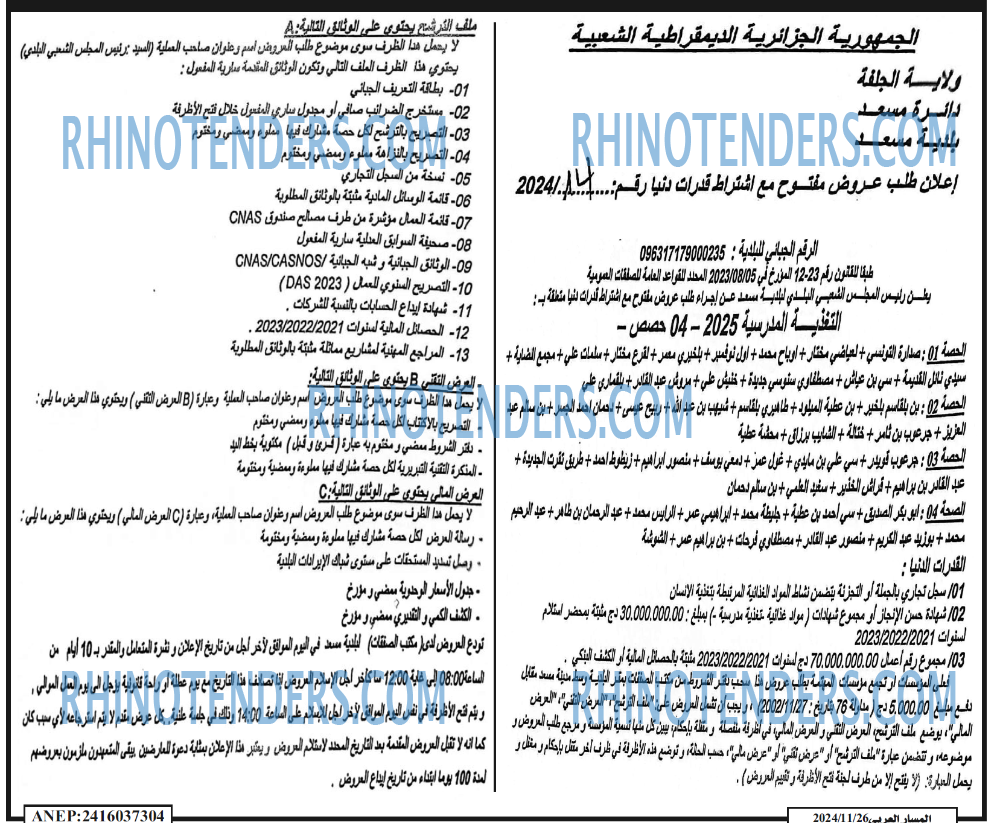 الجمهورية الجزائرية الديمقراطية الشعبية
ولايـــة الجلفة
دائــرة مسعـــد
بلديــة مسعـــد
إعلان طلب عـروض مفتـوح مع اشتراط قدرات دنيا رقـم:......../2024
الرقم الجبائي للبلدية : 096317179000235
طبقا للقانون رقم 23-12 المؤرخ في 2023/08/05 المحدد للقواعد العامة للصفقات العمومية
يعلـن رئيـس المجلـس الشعبـي البلـدي لبلديـة مسعـد عـن إجراء طلب عروض مفتوح مع اشتراط قدرات دنيا متعلقة بـ :
التغذيــة المدرسية 2025 – 04 حصص –
الحصة 01 : صدارة التونسي + لعياضي مختار + اوباح محمد + اول نوفمبر + بلخيري معمر + لقرع مختار + سلمات علي + مجمع الضاية +
سيدي نائل القديمة + سي بن عياش + مصطفاوي سنوسي جديدة + خنيش علي + مروش عبد القادر + لنصاري علي
الحصة 02 : بن بلقاسم بلخير + بن عطية الميلود + طاهيري بلقاسم + شويهب بن عبد الله + ربيح عيسى + دحمان احمد الجمر + بن سالم عبد
العزيز + جرعوب بن ثامر + ختالة + الشايب برزاق + محضة عطية
الحصة 03 : جرعوب قويدر + سي علي بن مايدي + غول عمر + دمعي يوسف + منصور ابراهيم + زيطوط احمد + طريق تقرت الجديدة +
عبد القادر بن براهيم + فراش الخذير + سفيد العلمي + بن سالم دحمان
الصحة 04 : ابو بكر الصديق + سي احمد بن عطية + جليطة محمد + ابراهيمي عمر + الرايس محمد + عبد الرحمان بن طاهر + عبد الرحيم
محمد + بوزيد عبد الكريم + منصور عبد القادر + مصطفاوي فرحات + بن براهيم عمر + الشوشة
القدرات الدنيا :
01/ سجل تجاري بالجملة أو التجزئة يتضمن نشاط المواد الغذائية المرتبطة بتغذية الانسان
02/ شهادة حسن الإنجاز أو مجموع شهادات ( مواد غذائية -تغذية مدرسية -) بمبلغ : 30.000.000.00 دج مثبتة بمحضر استلام
لسنوات 2023/2022/2021
03/ مجموع رقم أعمال 70.000.000.00 دج لسنوات 2023/2022/2021 مثبتة بالحصائل المالية أو الكشف البنكي .
فعلى المؤسسات أو تجمع مؤسسات المهتمة بطلب عروض هذا سحب دفتر الشروط من مكتب الصفقات بمقر البلدية مدينة مسعد مقابل
دفـع مبلـغ 5.000.00 دج ( مداولة 76 بتاريخ :2002/11/27) ، و يجب أن تشمل العروض على "ملف الترشح"، "العرض التقني"، "العرض
المالي"، يوضع ملف الترشح، العرض التقني و العرض المالي، في أظرفة منفصلة و مقفلة بإحكام، يبين كل منها تسمية المؤسسة و مرجع طلب العروض و
موضوعه، و تتضمن عبارة "ملف الترشح" أو "عرض تقني" أو "عرض مالي"، حسب الحالة، و توضع هذه الأظرفة في ظرف آخر مقفل بإحكام و مغفل و
يحمل العبارة: (لا يفتح إلا من طرف لجنة فتح الأظرفة و تقييم العروض ) .
المسار العربي 2024/11/26
ملف الترشح يحتوي على الوثائق التالية:A
لا يحمل هذا الظرف سوى موضوع طلب العروض اسم وعنوان صاحب العملية (السيد :رئيس المجلس الشعبي البلدي)
يحتوي هذا الظرف الملف التالي وتكون الوثائق المقدمة سارية المفعول :
01- بطاقة التعريف الجبائي
02- مستخرج الضرائب صافي أو مجدول ساري المفعول خلال فتح الأظرفة
03- التصريح بالترشح لكل حصة مشارك فيها مملوء وممضي ومختوم
04- التصريح بالنزاهة مملوء وممضي ومختوم
05- نسخة من السجل التجاري
06- قائمة الوسائل المادية مثبتة بالوثائق المطلوبة
07- قائمة العمال مؤشرة من طرف مصالح صندوق CNAS
08- صحيفة السوابق العدلية سارية المفعول
09- الوثائق الجبائية و شبه الجبائية /CNAS/CASNOS
10- التصريح السنوي للعمال ( DAS 2023 )
11- شهادة إيداع الحسابات بالنسبة للشركات .
12- الحصائل المالية لسنوات 2023/2022/2021 .
13- المراجع المهنية لمشاريع مماثلة مثبتة بالوثائق المطلوبة
- العرض التقني B يحتوي على الوثائق التالية:
لا يحمل هذا الظرف سوى موضوع طلب العروض اسم وعنوان صاحب العملية وعبارة (B العرض التقني ) ويحتوي هذا العرض ما يلي :
- التصريح بالاكتتاب لكل حصة مشارك فيها مملوء وممضي ومختوم
- دفتر الشروط ممضي و مختوم به عبارة ( قـرئ و قبل ) مكتوبة بخط اليد
- المذكرة التقنية التبريرية لكل حصة مشارك فيها مملوءة وممضية ومختومة
العرض المالي يحتوي على الوثائق التالية:C
لا يحمل هذا الظرف سوى موضوع طلب العروض اسم وعنوان صاحب العملية، وعبارة (C العرض المالي ) ويحتوي هذا العرض ما يلي :
- رسالة العرض لكل حصة مشارك فيها مملوءة وممضية ومختومة
- وصل تسديد المستحقات على مستوى شباك الإيرادات البلدية
- جدول الأسعار الوحدوية ممضي و مؤرخ
- الكشف الكمي و التقديري ممضي و مؤرخ
تودع العروض لدى( مكتب الصفقات) لبلدية مسعد في اليوم الموافق لآخر أجل من تاريخ الإعلان و نشرة المتعامل والمقدر بـ 10 أيام من
الساعة08:00 إلى غاية 12:00 سا كآخر أجل لإيداع العروض إذا تصادف هذا التاريخ مع يوم عطلة أو راحة قانونية يؤجل الى يوم العمل الموالي ,
و يتم فتح الأظرفة في نفس اليوم الموافق لآخر أجل للإيداع على الساعة 14:00 وذلك في جلسة علنية ..كل عرض مقدم لا يتم استرجاعه لأي سبب كان
كما انه لا تقبل العروض المقدمة بعد التاريخ المحدد لاستلام العروض و يعتبر هذا الإعلان بمثابة دعوة للعارضين .يبقى المتعهدون ملزمون بعروضهم
لمدة 100 يوما ابتداء من تاريخ إيداع العروض .
ANEP:2416037304
RHINOTENDERS.COM
RHINOTENDERS.COM
RHINOTENDERS.COM
RHINOTENDERS.COM
RHINOTENDERS.COM